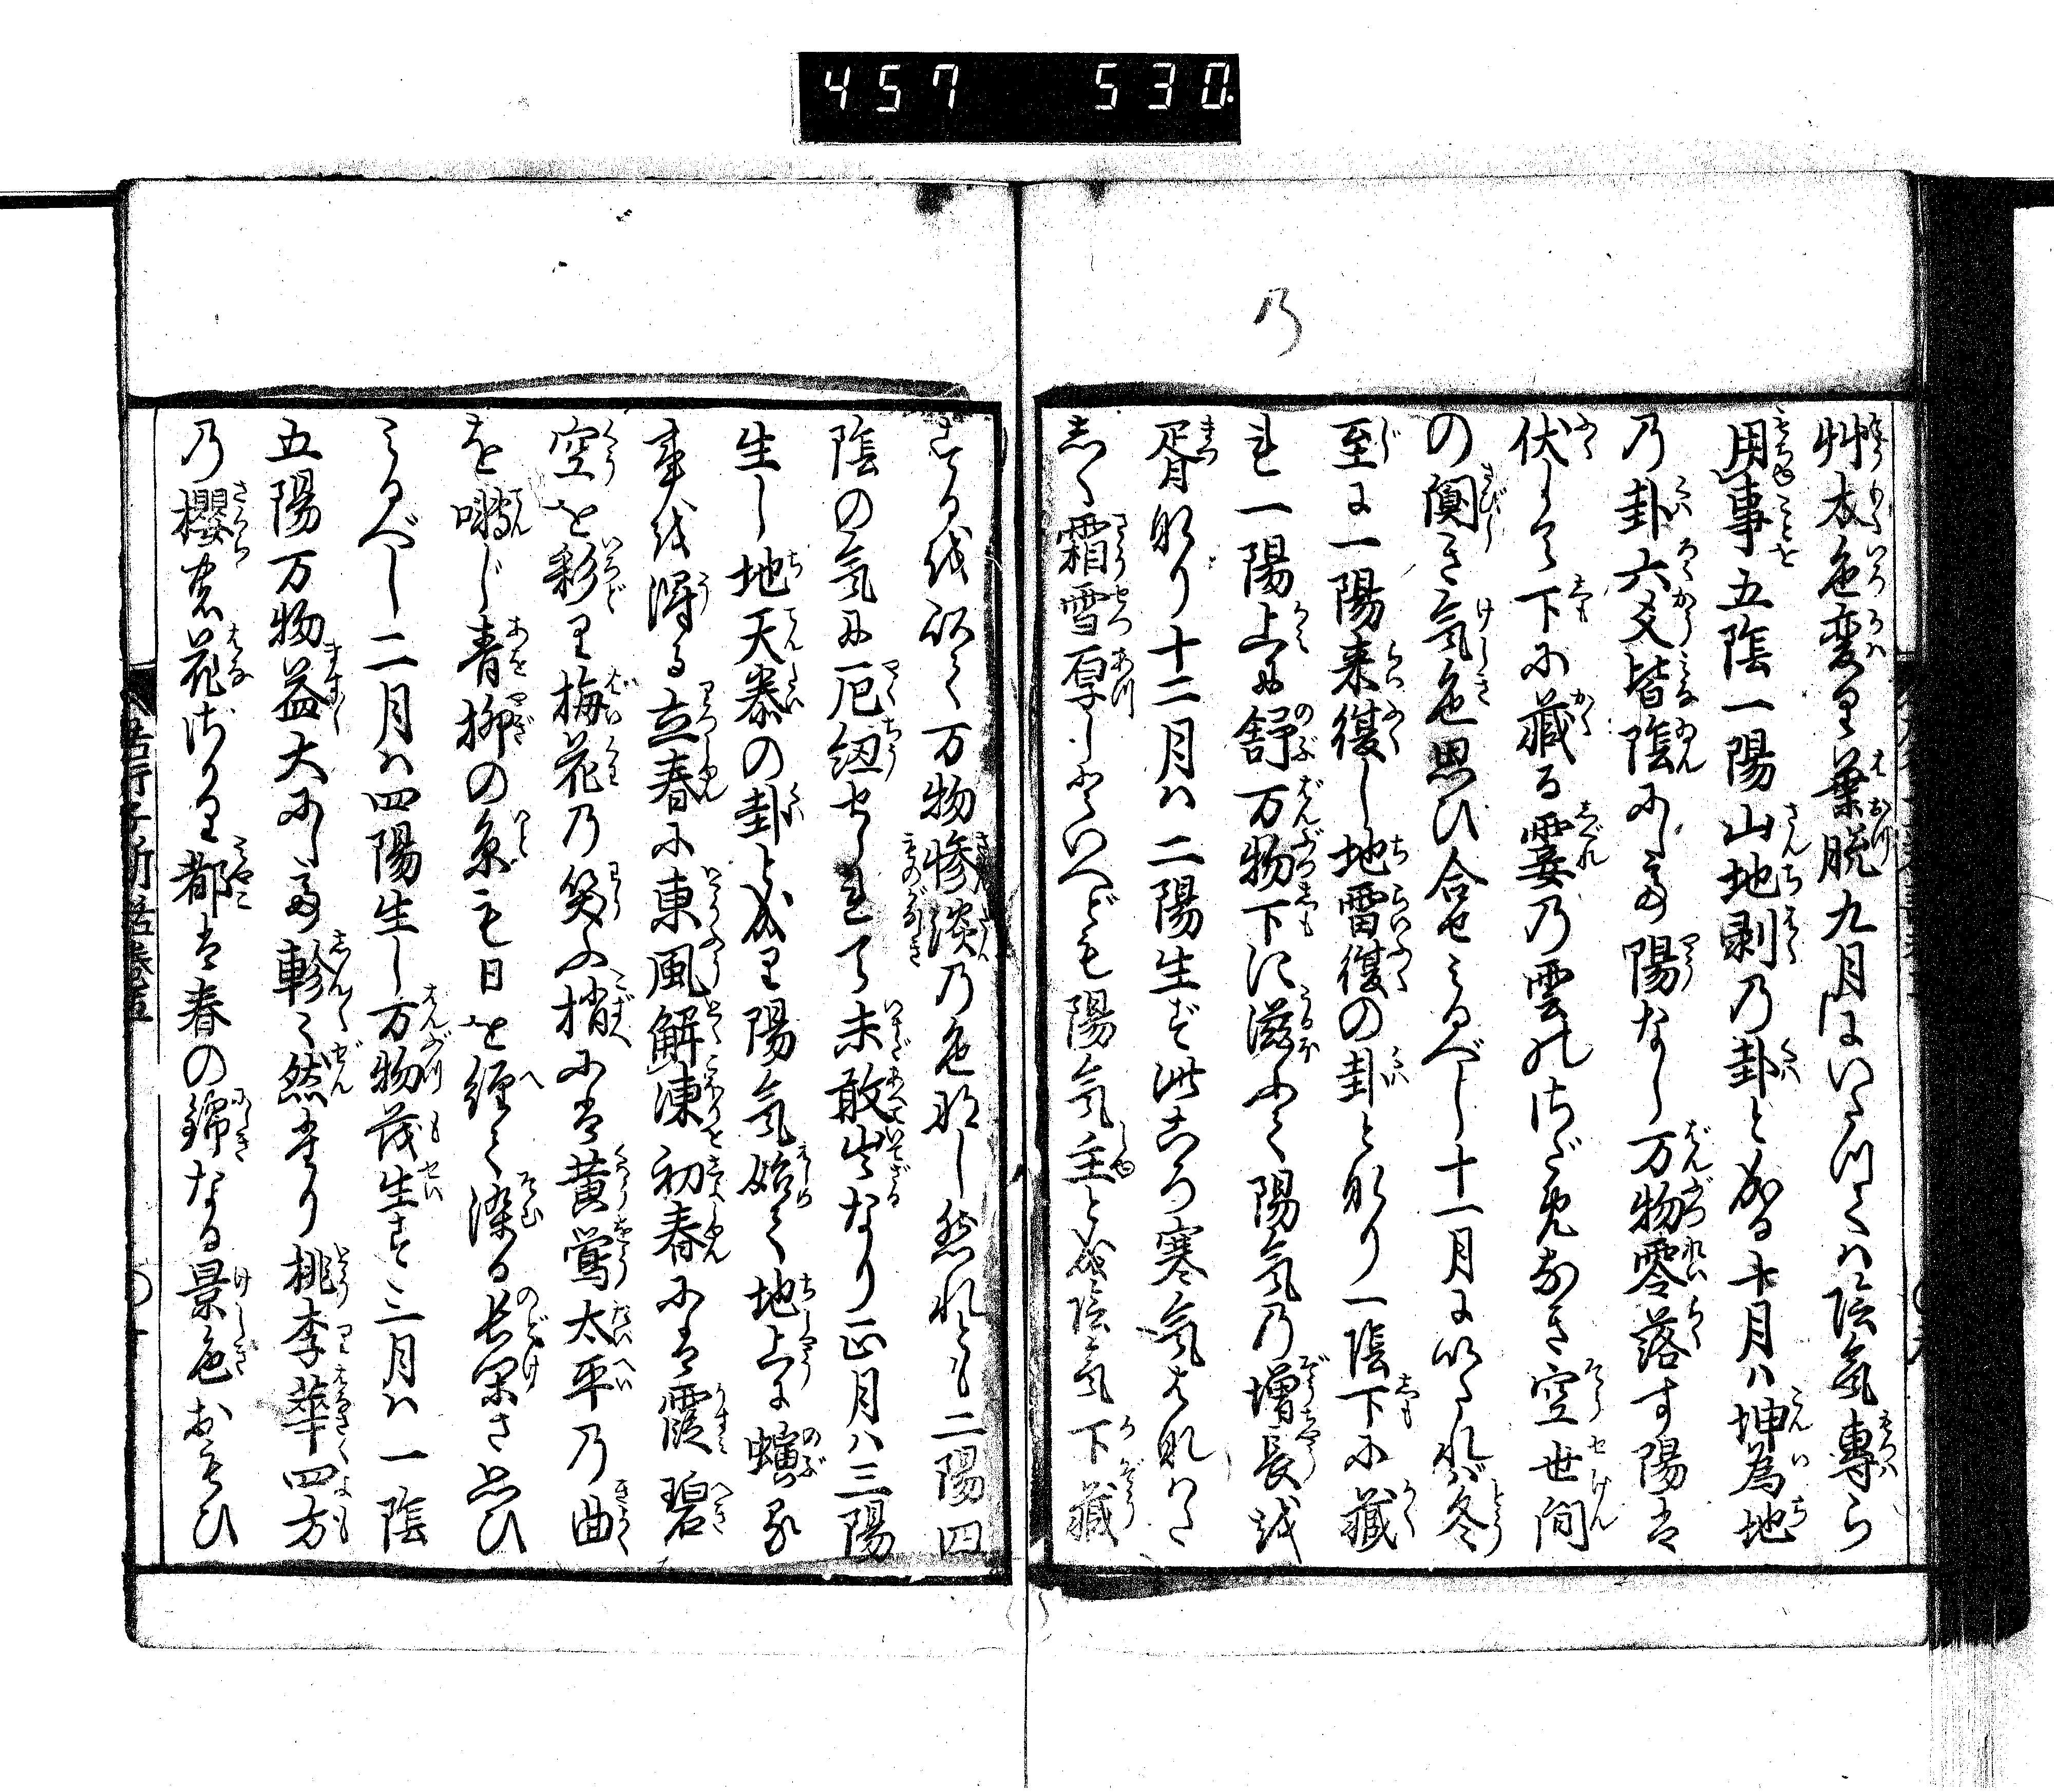 457 530.
乃
艸木色変り葉脱九月にいたつては陰気専ら
用事五陰一陽山地剥乃卦と成る十月は坤為地
乃卦六爻皆陰にして陽なし万物零落す陽は
伏して下に蔵る霎乃雲れさだめなき空世間
の闃き気色思ひ合せみるべし十一月にいたれば冬
至に一陽来復し地雷復の卦となり一陰下に蔵
れ一陽上に舒万物下に滋ふて陽気乃増長を
胥なり十二月は二陽生ず此ころ寒気はなはた
しく霜雪厚しといへども陽気主と成陰気下蔵
するを以て万物惨淡乃色なし然れとも二陽四
陰の気に厄紐せられて未敢出なり正月は三陽
生し地天泰の卦と成り陽気始て地上に螾る
事を得る立春に東風解凍初春には霞碧
空を彩り梅花乃笑ふ梢には黄鶯太平乃曲
を囀じ青柳の糸も日を経て染る長閑さ思ひ
みるべし二月は四陽生し万物茂生す三月は一陰
五陽万物益大にして軫々然たり桃李華四方
乃櫻花さかり都は春の錦なる景色おもひ